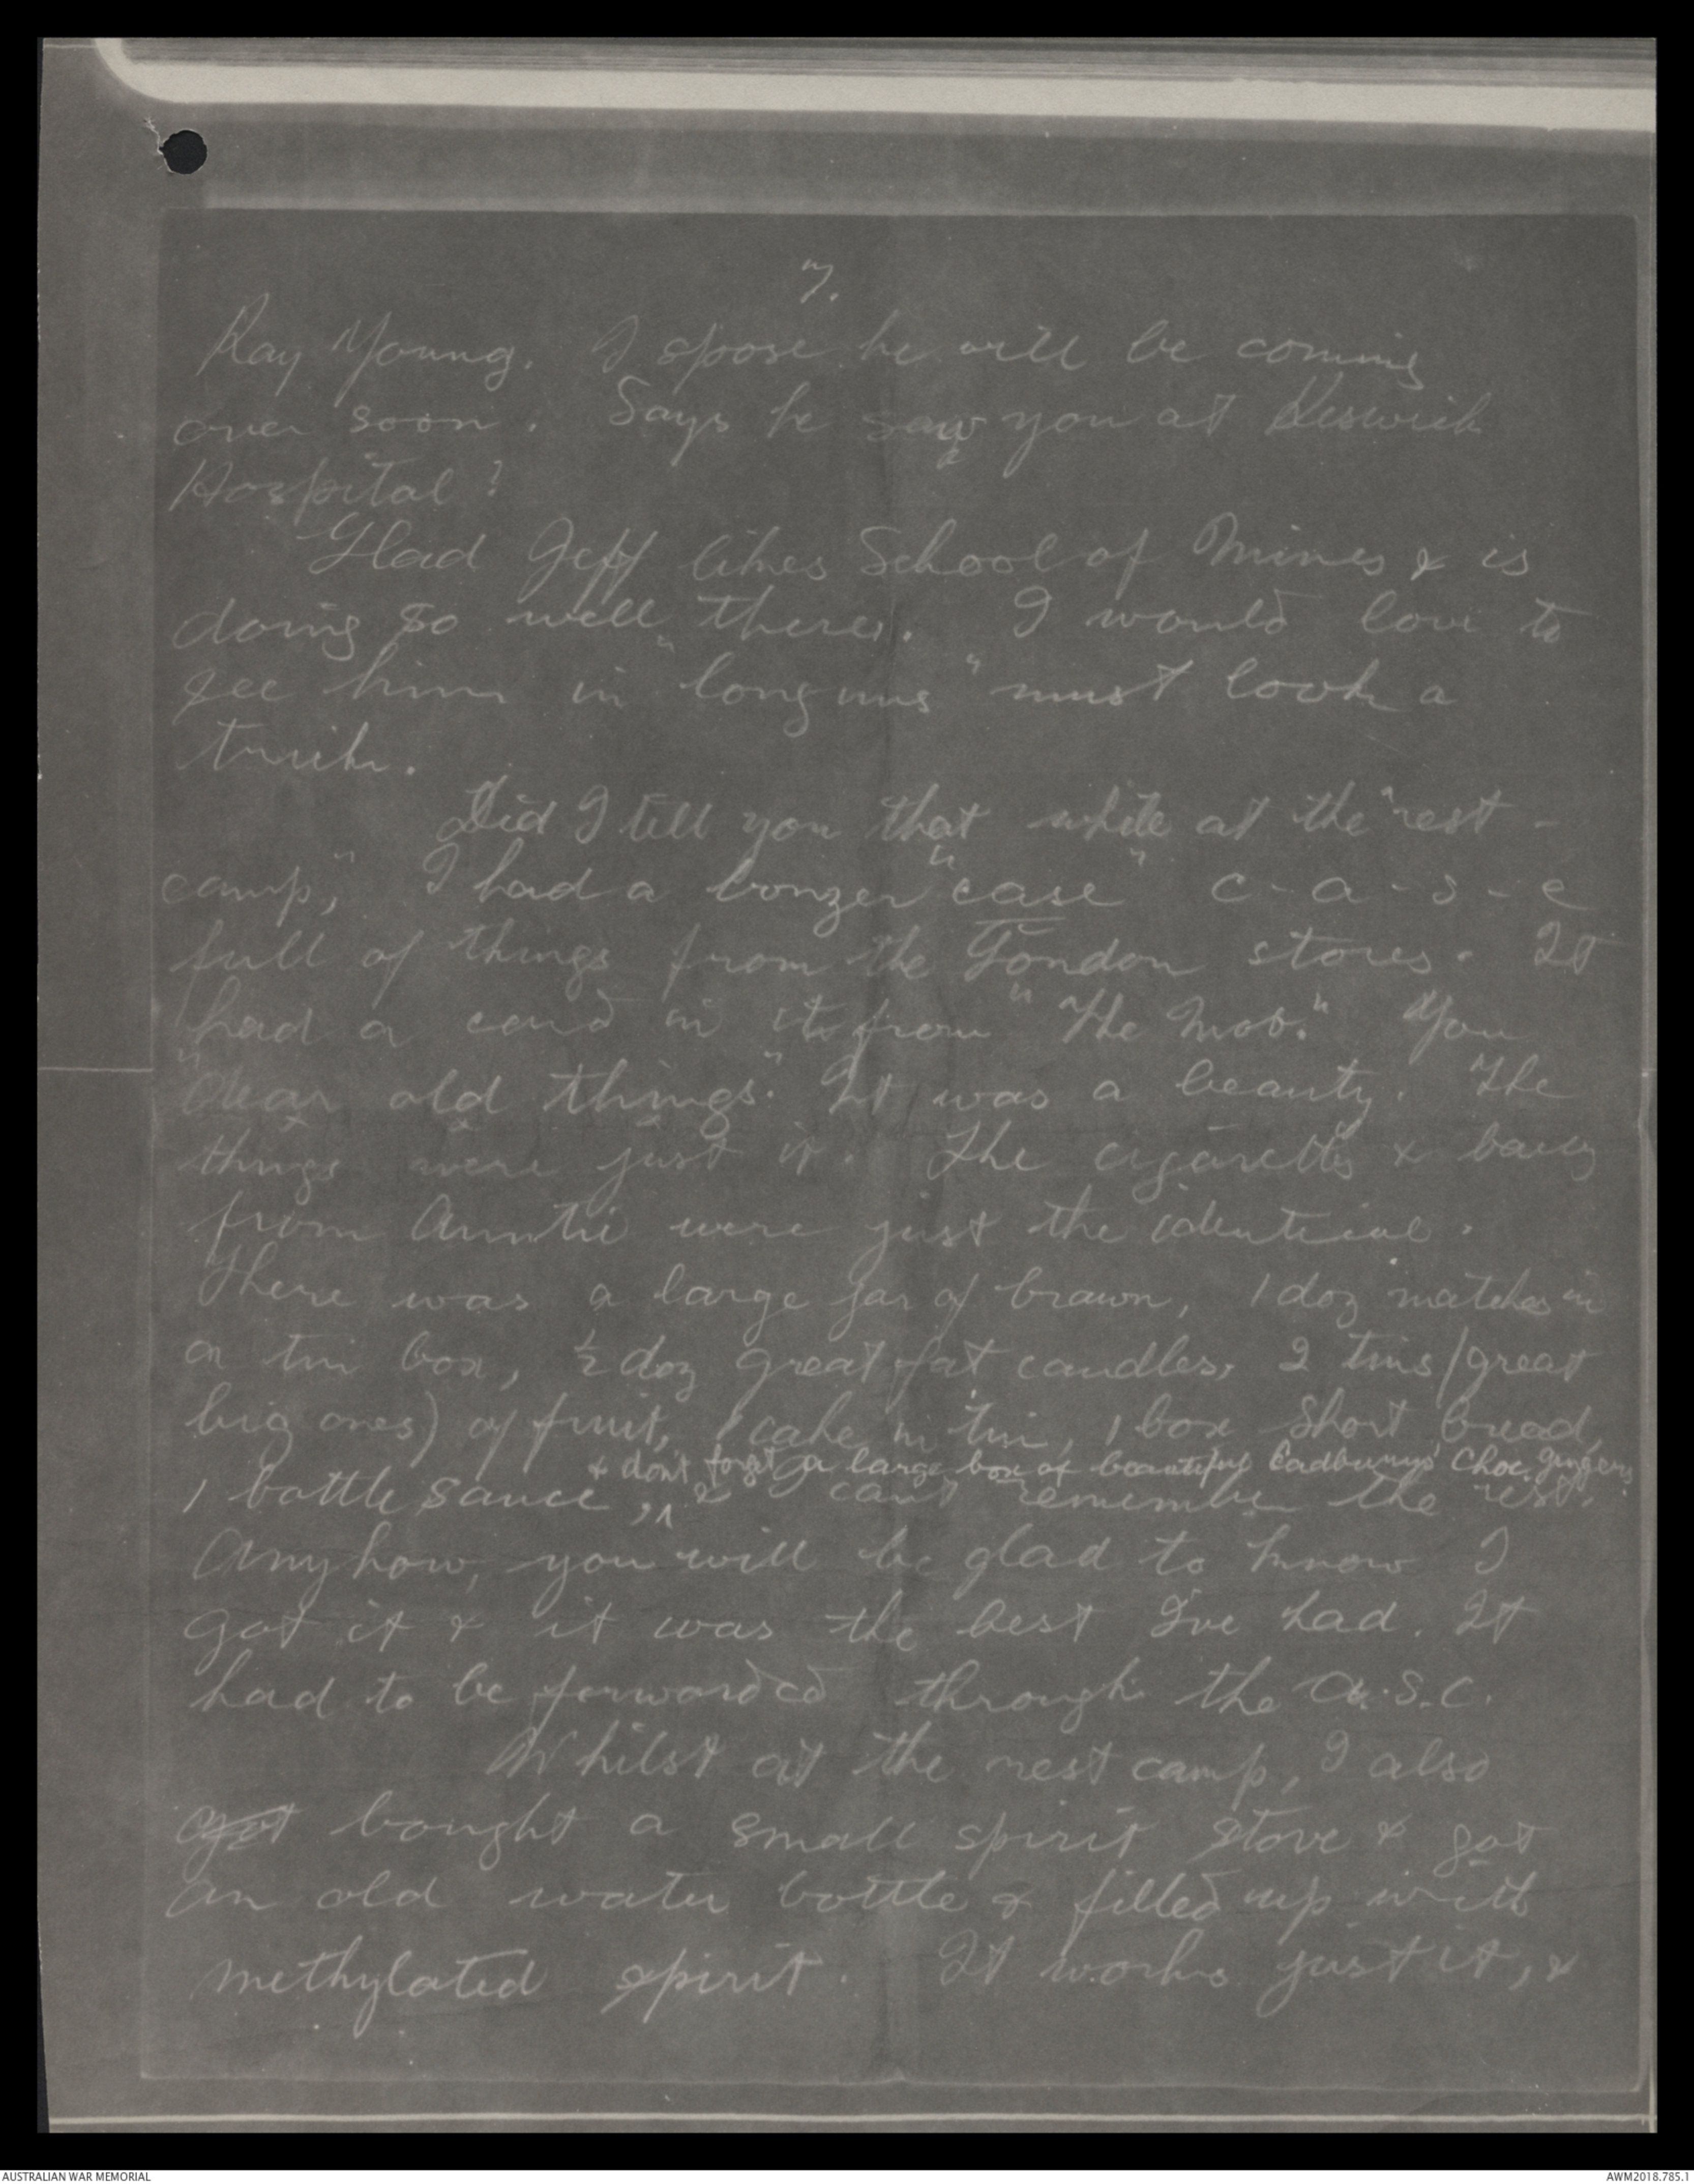 7.
Ray Young. I spose he will be coming
over soon. Says he saw you at Keswick
Hospital?
Glad Jeff likes School of Mines & is
doing so well there. I would love to
see him in "longuns" must look a
trick.
Did I tell you that while at the "rest-
camp," I had a bonzer "case" c-a-s-e
full of things from the London stores. It
had a card in it from "The Mob." You
"dear old things." It was a beauty. The
things were just it. The cigarettes &
from Auntie were just the identical.
There was a large jar of brawn, 1 doz matches in
a tin box, ½ doz great fat candles, 2 tins (great
big ones) of fruit, 1 cake in tin, 1 box Short bread,
& don't forget a large box of beautiful Cadburys' Choc. gingers
1 bottle sauce, & I can't remember the rest.
Anyhow, you will be glad to know I
got it & it was the best I've had. It
had to be forwarded through the A.S.C.
Whilst at the rest camp, I also
got bought a small spirit stove & got
an old water bottle & filled up with
methylated spirit. It works just it, &
AUSTRALIAN WAR MEMORIAL
AWM2018.785.1